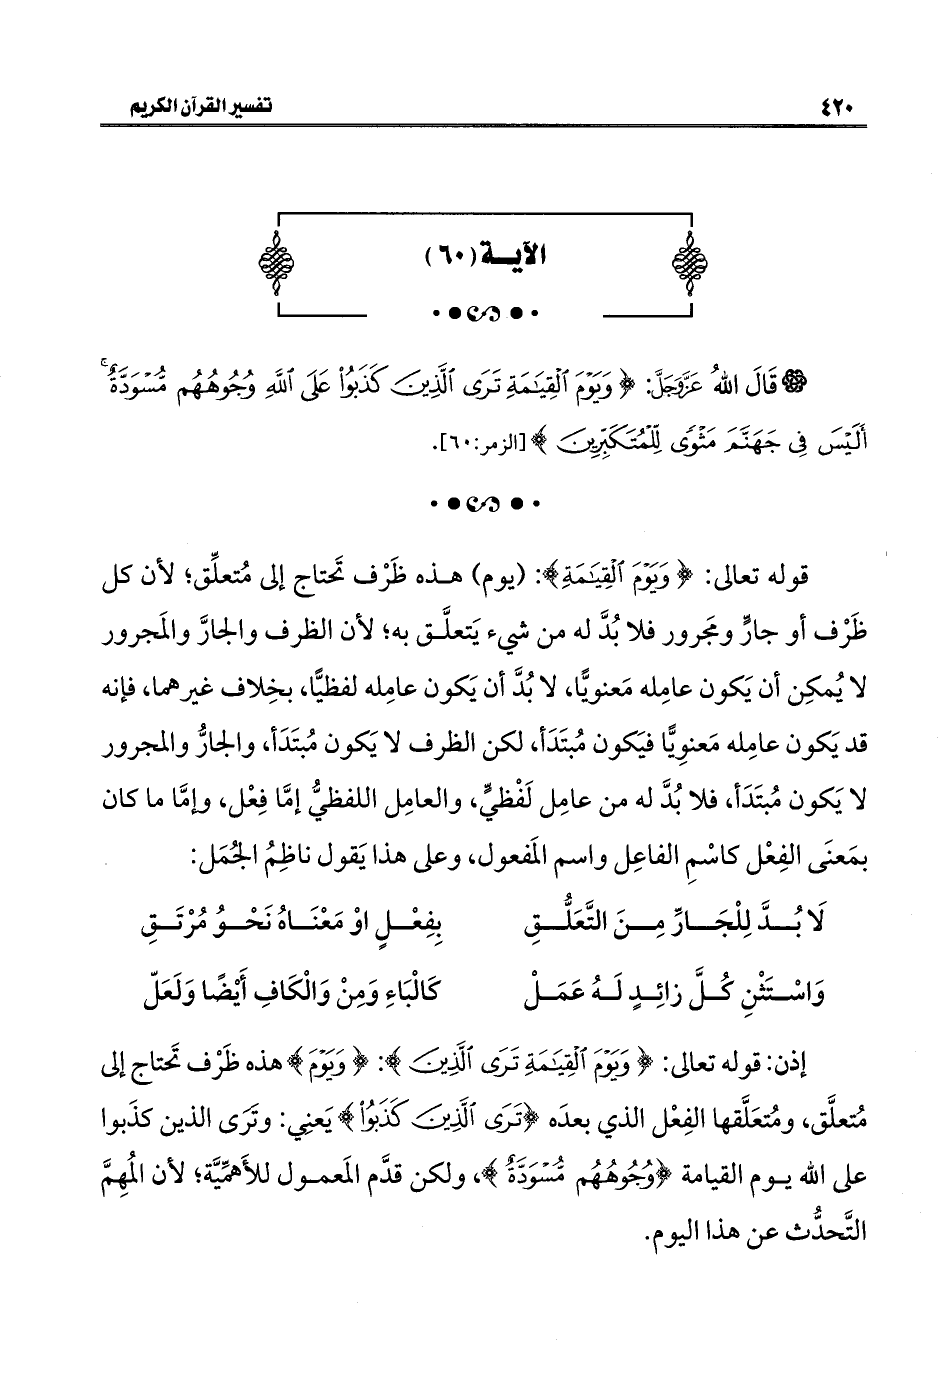 ٤٢٠ تفسير القرآن الكريم
الآيـــة (٦٠)
قَالَ اللهُ عَزَّوَجَلَّ: ﴿ وَيَوْمَ ٱلْقِيَٰمَةِ تَرَى ٱلَّذِينَ كَذَبُوا۟ عَلَى ٱللَّهِ وُجُوهُهُم مُّسْوَدَّةٌ ۚ
أَلَيْسَ فِى جَهَنَّمَ مَثْوًى لِّلْمُتَكَبِّرِينَ ﴾ [الزمر:٦٠].
قوله تعالى: ﴿ وَيَوْمَ ٱلْقِيَٰمَةِ ﴾: (يوم) هـذه ظَرْف تَحتاج إلى مُتعلِّق؛ لأن كل
ظَرْف أو جارٍّ ومَجرور فلا بُدَّ له من شيء يَتعلَّـق به؛ لأن الظرف والجارَّ والمَجرور
لا يُمكِن أن يَكون عامِله مَعنويًّا، لا بُدَّ أن يَكون عامِله لفظيًّا، بخِلاف غيرهما، فإنه
قد يَكون عامِله مَعنوِيًّا فيَكون مُبتَدَأ، لكن الظرف لا يَكون مُبتَدَأ، والجارُّ والمجرور
لا يَكون مُبتَدَأ، فلا بُدَّ له من عامِل لَفْظيٍّ، والعامِل اللفظيُّ إمَّا فِعْل، وإمَّا ما كان
بمَعنَى الفِعْل كاسْمِ الفاعِل واسم المَفعول، وعلى هذا يَقول ناظِمُ الجُمَل:
لَا بُـــدَّ لِلْجَـــارِّ مِـــنَ التَّعَلُّـــقِ بِفِعْـــلٍ اوْ مَعْنَـــاهُ نَحْـــوُ مُرْتَـــقِ
وَاسْـــتَثْنِ كُـــلَّ زائِـــدٍ لَـــهُ عَمَـــلْ كَالْبَاءِ وَمِنْ وَالْكَافِ أَيْضًا وَلَعَلّ
إذن: قوله تعالى: ﴿ وَيَوْمَ ٱلْقِيَٰمَةِ تَرَى ٱلَّذِينَ ﴾: ﴿ وَيَوْمَ ﴾ هذه ظَرْف تَحتاج إلى
مُتعلَّق، ومُتعَلَّقها الفِعْل الذي بعدَه ﴿تَرَى ٱلَّذِينَ كَذَبُوا۟ ﴾ يَعنِي: وتَرَى الذين كذَبوا
على الله يـوم القيامة ﴿وُجُوهُهُم مُّسْوَدَّةٌ ﴾، ولكن قدَّم المَعمـول للأهمِّيَّة؛ لأن المُهِمَّ
التَّحدُّث عن هذا اليوم.